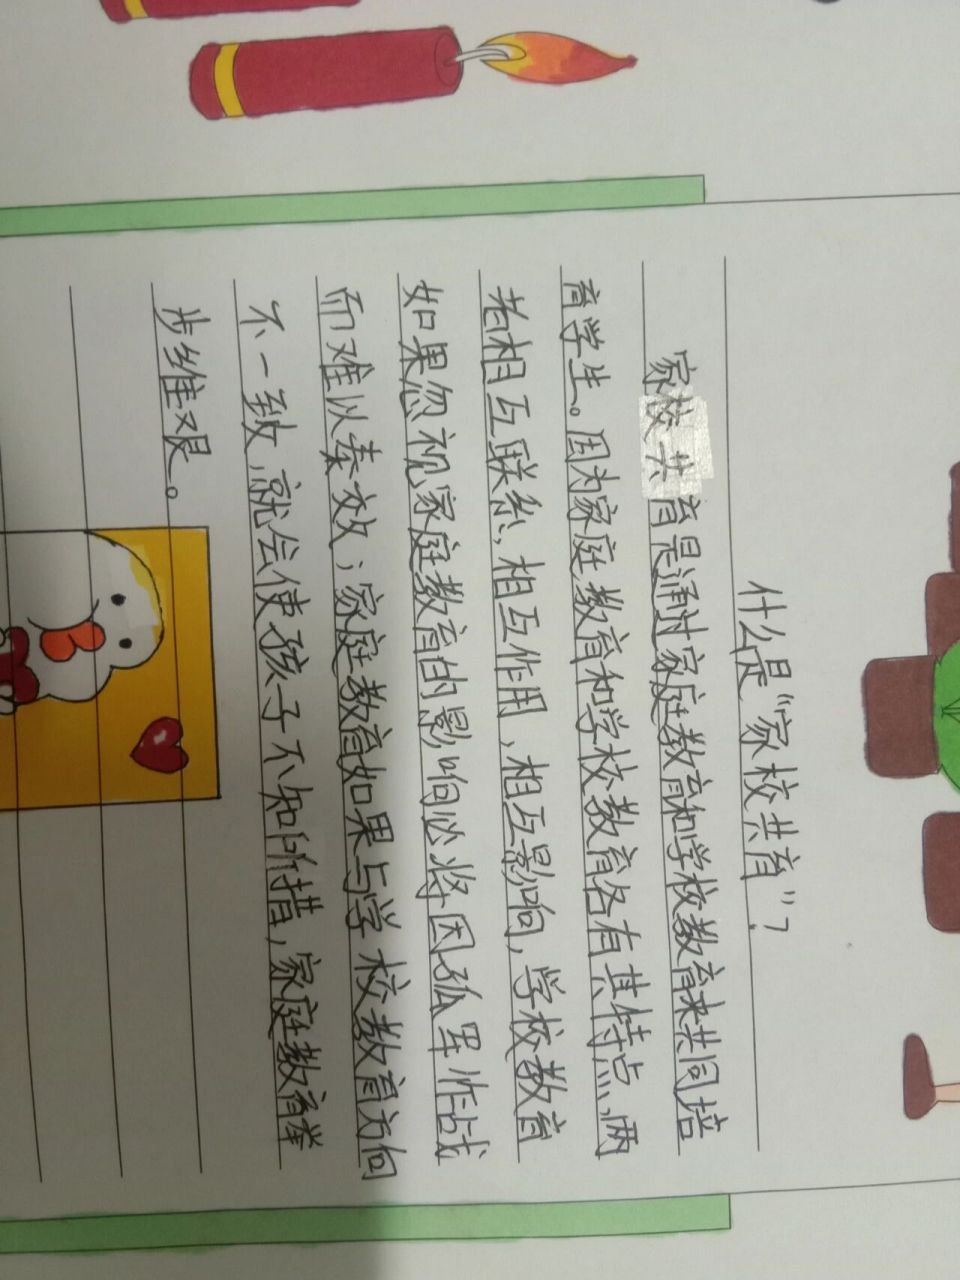 什么是“家校共育”？
家校共育是通过家庭教育和学校教育来共同培
育学生。因为家庭教育和学校教育各有其特点，两
者相互联系，相互作用，相互影响，学校教育
如果忽视家庭教育的影响必将因孤军作战
而难以奏效；家庭教育如果与学校教育方向
不一致，就会使孩子不知所措，家庭教育举
步维艰。